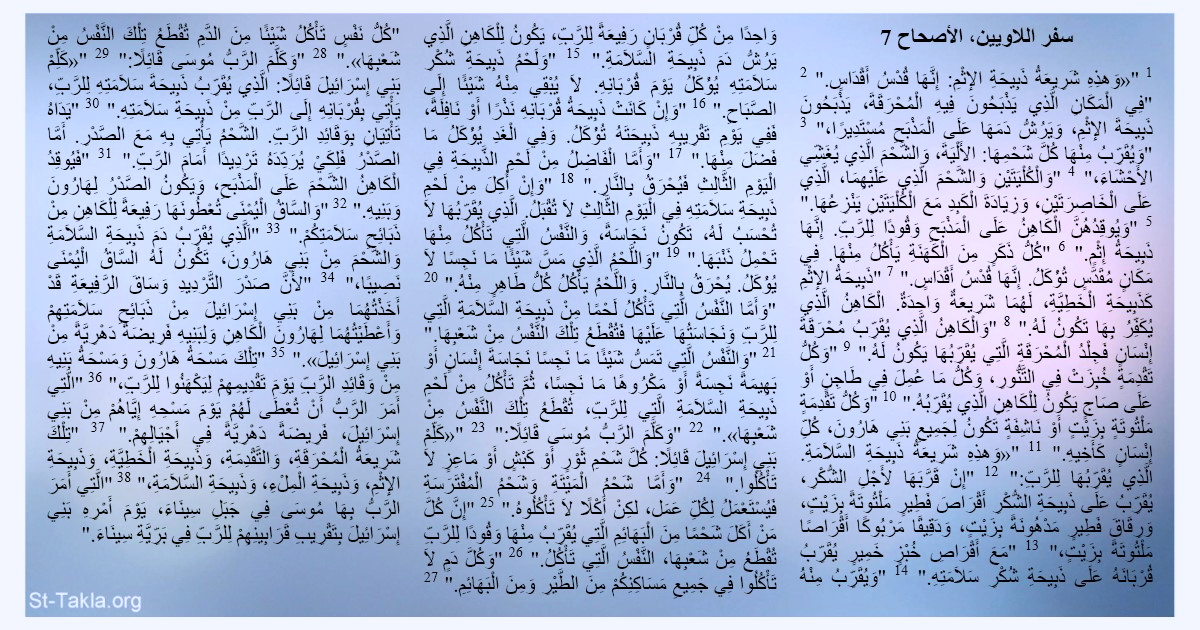 سفر اللاويين، الأصحاح 7
1 "«وَهذِهِ شَرِيعَةُ ذَبِيحَةِ الإِثْمِ: إِنَّهَا قُدْسُ أَقْدَاسٍ." 2
"فِي الْمَكَانِ الَّذِي يَذْبَحُونَ فِيهِ الْمُحْرَقَةَ، يَذْبَحُونَ
ذَبِيحَةَ الإِثْمِ، وَيَرُشُّ دَمَهَا عَلَى الْمَذْبَحِ مُسْتَدِيرًا،" 3
"وَيُقَرِّبُ مِنْهَا كُلَّ شَحْمِهَا: الأَلْيَةَ، وَالشَّحْمَ الَّذِي يُغَشِّي
الأَحْشَاءَ،" 4 "وَالْكُلْيَتَيْنِ وَالشَّحْمَ الَّذِي عَلَيْهِمَا، الَّذِي
عَلَى الْخَاصِرَتَيْنِ، وَزِيَادَةَ الْكَبِدِ مَعَ الْكُلْيَتَيْنِ يَنْزِعُهَا."
5 "وَيُوقِدُهُنَّ الْكَاهِنُ عَلَى الْمَذْبَحِ وَقُودًا لِلرَّبِّ. إِنَّهَا
ذَبِيحَةُ إِثْمٍ." 6 "كُلُّ ذَكَرٍ مِنَ الْكَهَنَةِ يَأْكُلُ مِنْهَا. فِي
مَكَانٍ مُقَدَّسٍ تُؤْكَلُ. إِنَّهَا قُدْسُ أَقْدَاسٍ." 7 "ذَبِيحَةُ الإِثْمِ
كَذَبِيحَةِ الْخَطِيَّةِ، لَهُمَا شَرِيعَةٌ وَاحِدَةٌ. الْكَاهِنُ الَّذِي
يُكَفِّرُ بِهَا تَكُونُ لَهُ." 8 "وَالْكَاهِنُ الَّذِي يُقَرِّبُ مُحْرَقَةَ
إِنْسَانٍ فَجِلْدُ الْمُحْرَقَةِ الَّتِي يُقَرِّبُهَا يَكُونُ لَهُ." 9 "وَكُلُّ
تَقْدِمَةٍ خُبِزَتْ فِي التَّنُّورِ، وَكُلُّ مَا عُمِلَ فِي طَاجِنٍ أَوْ
عَلَى صَاجٍ يَكُونُ لِلْكَاهِنِ الَّذِي يُقَرِّبُهُ." 10 "وَكُلُّ تَقْدِمَةٍ
مَلْتُوتَةٍ بِزَيْتٍ أَوْ نَاشِفَةٍ تَكُونُ لِجَمِيعِ بَنِي هَارُونَ، كُلِّ
إِنْسَانٍ كَأَخِيهِ." 11 "«وَهذِهِ شَرِيعَةُ ذَبِيحَةِ السَّلاَمَةِ.
الَّذِي يُقَرِّبُهَا لِلرَّبِّ:" 12 "إِنْ قَرَّبَهَا لأَجْلِ الشُّكْرِ،
يُقَرِّبُ عَلَى ذَبِيحَةِ الشُّكْرِ أَقْرَاصَ فَطِيرٍ مَلْتُوتَةً بِزَيْتٍ،
وَرِقَاقَ فَطِيرٍ مَدْهُونَةً بِزَيْتٍ، وَدَقِيقًا مَرْبُوكًا أَقْرَاصًا
مَلْتُوتَةً بِزَيْتٍ،" 13 "مَعَ أَقْرَاصِ خُبْزٍ خَمِيرٍ يُقَرِّبُ
قُرْبَانَهُ عَلَى ذَبِيحَةِ شُكْرِ سَلاَمَتِهِ." 14 "وَيُقَرِّبُ مِنْهُ
وَاحِدًا مِنْ كُلِّ قُرْبَانٍ رَفِيعَةً لِلرَّبِّ، يَكُونُ لِلْكَاهِنِ الَّذِي
يَرُشُّ دَمَ ذَبِيحَةِ السَّلاَمَةِ." 15 "وَلَحْمُ ذَبِيحَةِ شُكْرِ
سَلاَمَتِهِ يُؤْكَلُ يَوْمَ قُرْبَانِهِ. لاَ يُبْقِي مِنْهُ شَيْئًا إِلَى
الصَّبَاحِ." 16 "وَإِنْ كَانَتْ ذَبِيحَةُ قُرْبَانِهِ نَذْرًا أَوْ نَافِلَةً،
فَفِي يَوْمِ تَقْرِيبِهِ ذَبِيحَتَهُ تُؤْكَلُ. وَفِي الْغَدِ يُؤْكَلُ مَا
فَضَلَ مِنْهَا." 17 "وَأَمَّا الْفَاضِلُ مِنْ لَحْمِ الذَّبِيحَةِ فِي
الْيَوْمِ الثَّالِثِ فَيُحْرَقُ بِالنَّارِ." 18 "وَإِنْ أُكِلَ مِنْ لَحْمِ
ذَبِيحَةِ سَلاَمَتِهِ فِي الْيَوْمِ الثَّالِثِ لاَ تُقْبَلُ. الَّذِي يُقَرِّبُهَا لاَ
تُحْسَبُ لَهُ، تَكُونُ نَجَاسَةً، وَالنَّفْسُ الَّتِي تَأْكُلُ مِنْهَا
تَحْمِلُ ذَنْبَهَا." 19 "وَاللَّحْمُ الَّذِي مَسَّ شَيْئًا مَا نَجِسًا لاَ
يُؤْكَلُ. يُحْرَقُ بِالنَّارِ. وَاللَّحْمُ يَأْكُلُ كُلُّ طَاهِرٍ مِنْهُ." 20
"وَأَمَّا النَّفْسُ الَّتِي تَأْكُلُ لَحْمًا مِنْ ذَبِيحَةِ السَّلاَمَةِ الَّتِي
لِلرَّبِّ وَنَجَاسَتُهَا عَلَيْهَا فَتُقْطَعُ تِلْكَ النَّفْسُ مِنْ شَعْبِهَا."
21 "وَالنَّفْسُ الَّتِي تَمَسُّ شَيْئًا مَا نَجِسًا نَجَاسَةَ إِنْسَانٍ أَوْ
بَهِيمَةً نَجِسَةً أَوْ مَكْرُوهًا مَا نَجِسًا، ثُمَّ تَأْكُلُ مِنْ لَحْمِ
ذَبِيحَةِ السَّلاَمَةِ الَّتِي لِلرَّبِّ، تُقْطَعُ تِلْكَ النَّفْسُ مِنْ
شَعْبِهَا»." 22 "وَكَلَّمَ الرَّبُّ مُوسَى قَائِلًا:" 23 "«كَلِّمْ
بَنِي إِسْرَائِيلَ قَائِلًا: كُلَّ شَحْمِ ثَوْرٍ أَوْ كَبْشٍ أَوْ مَاعِزٍ لاَ
تَأْكُلُوا." 24 "وَأَمَّا شَحْمُ الْمَيْتَةِ وَشَحْمُ الْمُفْتَرَسَةِ
فَيُسْتَعْمَلُ لِكُلِّ عَمَل، لكِنْ أَكْلًا لاَ تَأْكُلُوهُ." 25 "إِنَّ كُلَّ
مَنْ أَكَلَ شَحْمًا مِنَ الْبَهَائِمِ الَّتِي يُقَرِّبُ مِنْهَا وَقُودًا لِلرَّبِّ
تُقْطَعُ مِنْ شَعْبِهَا، النَّفْسُ الَّتِي تَأْكُلُ." 26 "وَكُلَّ دَمٍ لاَ
تَأْكُلُوا فِي جَمِيعِ مَسَاكِنِكُمْ مِنَ الطَّيْرِ وَمِنَ الْبَهَائِمِ." 27
"كُلُّ نَفْسٍ تَأْكُلُ شَيْئًا مِنَ الدَّمِ تُقْطَعُ تِلْكَ النَّفْسُ مِنْ
شَعْبِهَا»." 28 "وَكَلَّمَ الرَّبُّ مُوسَى قَائِلًا:" 29 "«كَلِّمْ
بَنِي إِسْرَائِيلَ قَائِلًا: الَّذِي يُقَرِّبُ ذَبِيحَةَ سَلاَمَتِهِ لِلرَّبِّ،
يَأْتِي بِقُرْبَانِهِ إِلَى الرَّبِّ مِنْ ذَبِيحَةِ سَلاَمَتِهِ." 30 "يَدَاهُ
تَأْتِيَانِ بِوَقَائِدِ الرَّبِّ. الشَّحْمُ يَأْتِي بِهِ مَعَ الصَّدْرِ. أَمَّا
الصَّدْرُ فَلِكَيْ يُرَدِّدَهُ تَرْدِيدًا أَمَامَ الرَّبِّ." 31 "فَيُوقِدُ
الْكَاهِنُ الشَّحْمَ عَلَى الْمَذْبَحِ، وَيَكُونُ الصَّدْرُ لِهَارُونَ
وَبَنِيهِ." 32 "وَالسَّاقُ الْيُمْنَى تُعْطُونَهَا رَفِيعَةً لِلْكَاهِنِ مِنْ
ذَبَائِحِ سَلاَمَتِكُمْ." 33 "اَلَّذِي يُقَرِّبُ دَمَ ذَبِيحَةِ السَّلاَمَةِ
وَالشَّحْمَ مِنْ بَنِي هَارُونَ، تَكُونُ لَهُ السَّاقُ الْيُمْنَى
نَصِيبًا،" 34 "لأَنَّ صَدْرَ التَّرْدِيدِ وَسَاقَ الرَّفِيعَةِ قَدْ
أَخَذْتُهُمَا مِنْ بَنِي إِسْرَائِيلَ مِنْ ذَبَائِحِ سَلاَمَتِهِمْ
وَأَعْطَيْتُهُمَا لِهَارُونَ الْكَاهِنِ وَلِبَنِيهِ فَرِيضَةً دَهْرِيَّةً مِنْ
بَنِي إِسْرَائِيلَ»." 35 "تِلْكَ مَسْحَةُ هَارُونَ وَمَسْحَةُ بَنِيهِ
مِنْ وَقَائِدِ الرَّبِّ يَوْمَ تَقْدِيمِهِمْ لِيَكْهَنُوا لِلرَّبِّ،" 36 "الَّتِي
أَمَرَ الرَّبُّ أَنْ تُعْطَى لَهُمْ يَوْمَ مَسْحِهِ إِيَّاهُمْ مِنْ بَنِي
إِسْرَائِيلَ، فَرِيضَةً دَهْرِيَّةً فِي أَجْيَالِهِمْ." 37 "تِلْكَ
شَرِيعَةُ الْمُحْرَقَةِ، وَالتَّقْدِمَةِ، وَذَبِيحَةِ الْخَطِيَّةِ، وَذَبِيحَةِ
الإِثْمِ، وَذَبِيحَةِ الْمِلْءِ، وَذَبِيحَةِ السَّلاَمَةِ،" 38 "الَّتِي أَمَرَ
الرَّبُّ بِهَا مُوسَى فِي جَبَلِ سِينَاءَ، يَوْمَ أَمْرِهِ بَنِي
إِسْرَائِيلَ بِتَقْرِيبِ قَرَابِينِهِمْ لِلرَّبِّ فِي بَرِّيَّةِ سِينَاءَ."
St-Takla.org